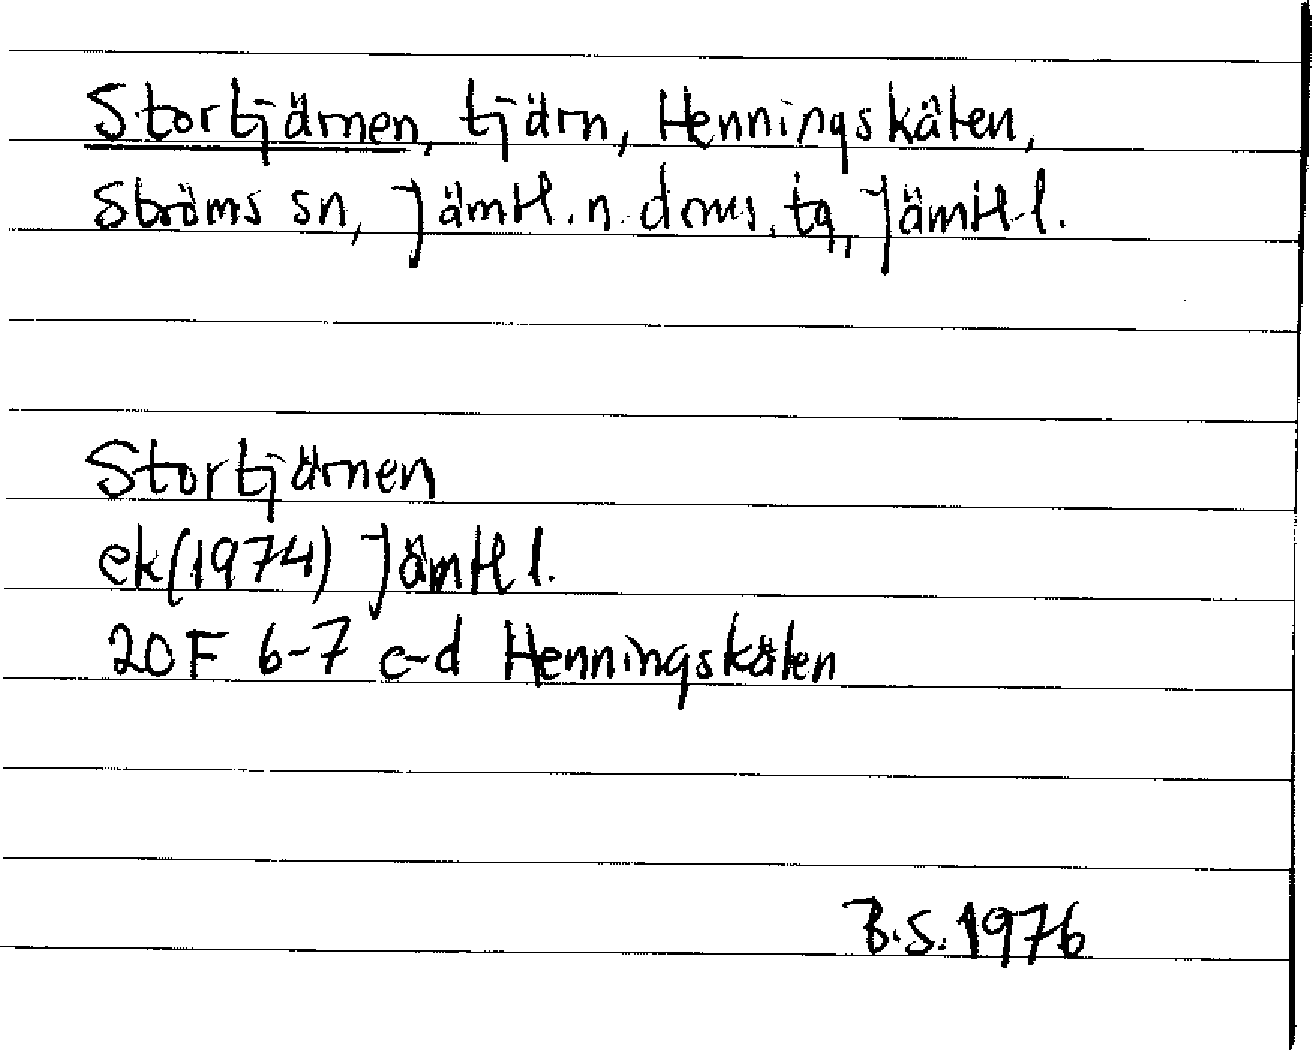 Stortjärnen, tjärn, Henningskälen,
Ströms sn, Jämtl. n. doms. tg, Jämtl. l.
Stortjärnen
ek (1974) Jämtl l.
20 F 6-7 c-d Henningskälen
B.S. 1976